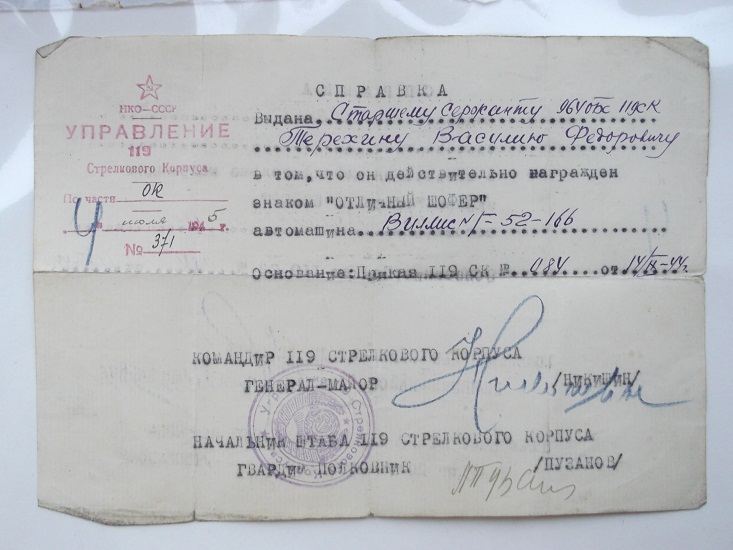 НКО—СССР
УПРАВЛЕНИЕ
119
Стрелкового Корпуса
По части ОК
4 июля 1945 г.
№ 371
СПРАВКА
Выдана Старшему Сержанту 964 119 СК
Терехину Василию Федоровичу
в том, что он действительно награжден
знаком "ОТЛИЧНЫЙ ШОФЕР"
автомашина Виллис №Г-52-166
Основание: Приказ 119 СК № 084 от 14/IX-44г.
КОМАНДИР 119 СТРЕЛКОВОГО КОРПУСА
ГЕНЕРАЛ-МАЙОР /НИКИШИН/
НАЧАЛЬНИК ШТАБА 119 СТРЕЛКОВОГО КОРПУСА
ГВАРДИИ ПОЛКОВНИК /ПУЗАНОВ/